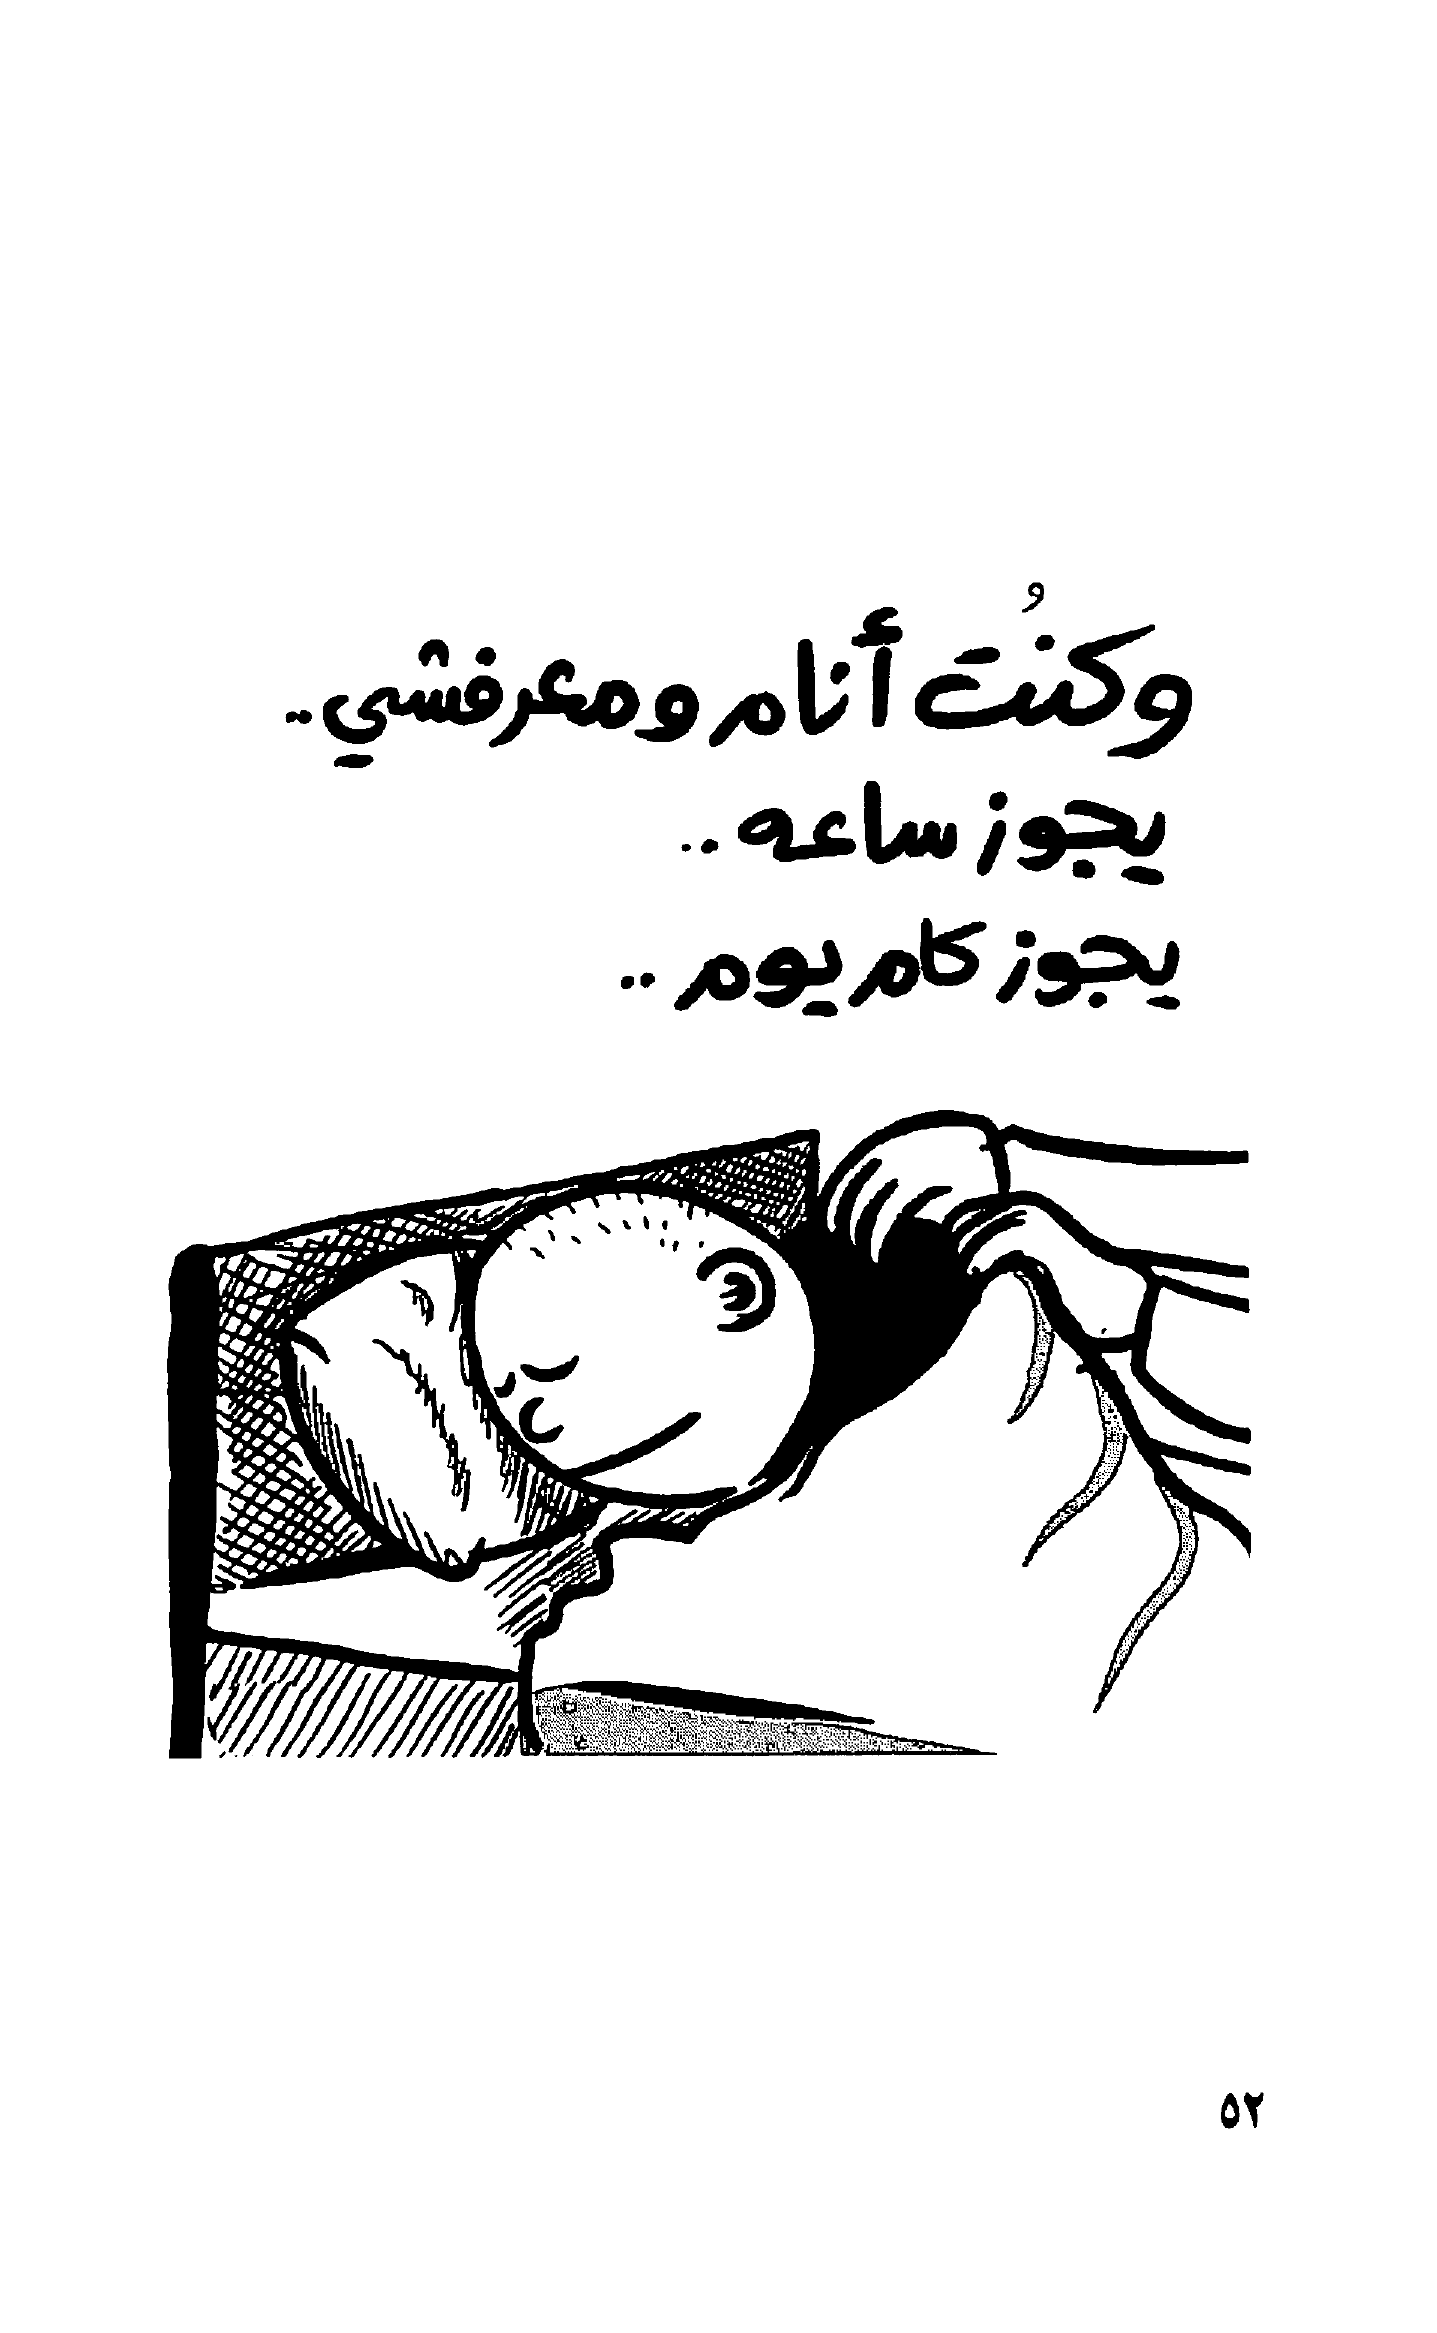 وكنُت أنام ومعرفشي..
يجوز ساعه ..
يجوز كام يوم ..
٥٢